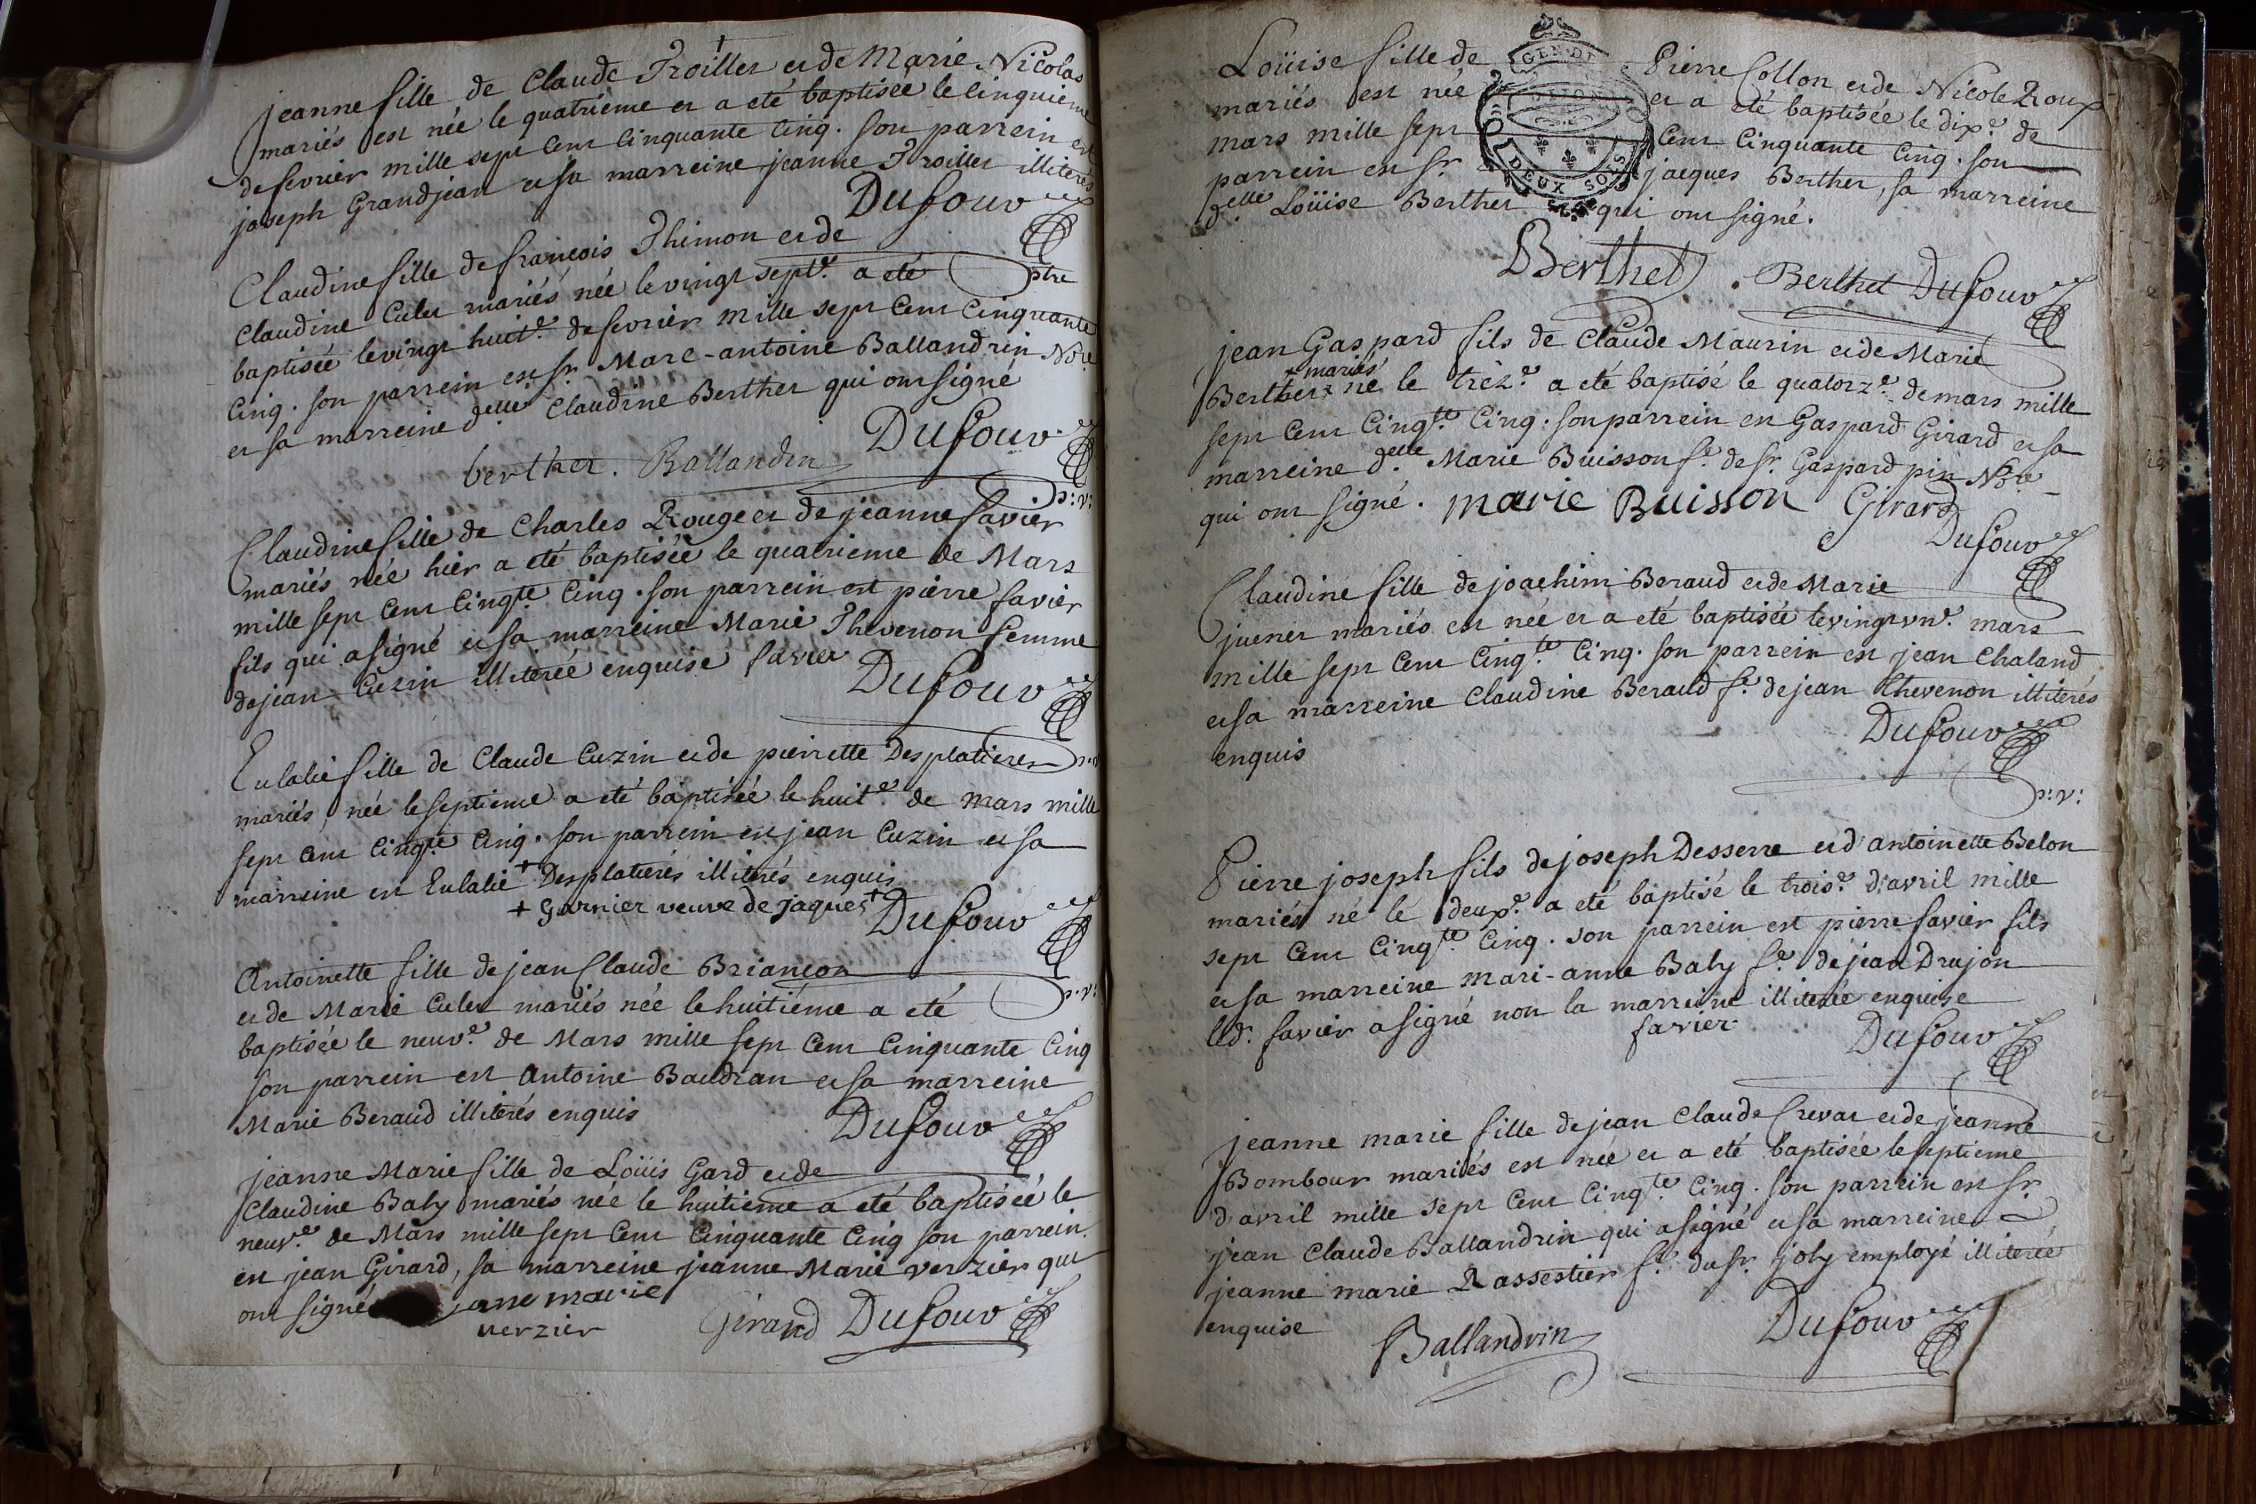 jeanne fille de Claude Troillet et de Marie Nicolas
mariés est née le quatrieme et a eté baptisée le cinquieme
de fevrier mille sept cent cinquante cinq. son parrein est
joseph Grandjean et sa marreine jeanne Troillet illiterés
Dufour
ptre
Claudine fille de françois Thimon et de
Claudine Culet mariés née le vingt sept.e a eté
baptisée le vingt huit.e de fevrier mille sept cent cinquante
cinq. son parrein est Sr. Marc-antoine Ballandrin N.re
et sa marreine d.elle Claudine Berthet qui ont signé
berthet. Ballandrin Dufour
p:v:
Claudine fille de Charles Rouge et de jeanne favier
mariés née hier a eté baptisée le quatrieme de Mars
mille sept cent cinq.te cinq. son parrein est pierre favier
fils qui a signé et sa marreine Marie Thevenon femme
de jean Cuzin illiterée enquise favier
Dufour
p:v:
Eulalie fille de Claude Cuzin et de pierrette Desplatieres
mariés, née le septieme a eté baptisée le huit.e de Mars mille
sept cent cinq.te cinq. son parrein est jean Cuzin et sa
marreine est Eulalie + Desplatierés illiterés enquis
+ Garnier veuve de jaques + Dufour
p:v:
Antoinette fille de jean Claude Briançon
et de Marie Culet mariés née le huitiéme a eté
baptisée le neuv.e de Mars mille sept cent cinquante cinq
son parrein est Antoine Baudran et sa marreine
Marie Beraud illiterés enquis
Dufour
jeanne Marie fille de Loüis Gard et de
Claudine Baly mariés née le huitieme a eté baptisée le
neuv.e de Mars mille sept cent cinquante cinq son parrein
est jean Girard, sa marreine jeanne Marie verzier qui
ont signé anne marie
verzier Girard Dufour
Loüise fille de Pierre Collon et de Nicole Roux
mariés est née et a eté baptisée le dix.e de
mars mille sept cent cinquante cinq. son
parrein est Sr. jacques Berthet, sa marreine
d.elle Loüise Berthet qui ont signé.
GEN. DE
DEUX SOLS
Berthet. Berthet Dufour
jean Gaspard fils de Claude Maurin et de Marie
+ mariés
Berthet + né le trez.e a eté baptisé le quatorz.e de mars mille
sept cent cinq.te cinq. son parrein est Gaspard Girard et sa
marreine d.elle Marie Buisson f.e de Sr. Gaspard pin N.re
qui ont signé. marie Buisson Girard
Dufour
Claudine fille de joachim Beraud et de Marie
juenet mariés est née et a eté baptisée le vingt vn.e mars
mille sept cent cinq.te cinq. son parrein est jean Chaland
et sa marreine Claudine Beraud f.e de jean thevenon illiterés
enquis
Dufour
p:v:
Pierre joseph fils de joseph Desserre et d'antoinette Belon
mariés né le deux.e a eté baptisé le trois.e d'avril mille
sept cent cinq.te cinq. son parrein est pierre favier fils
et sa marreine mari-anne Baly f.e de jean Drujon
led. favier a signé non la marreine illiterée enquise
favier Dufour
jeanne marie fille de jean Claude Crevat et de jeanne
Bombour mariés est née et a eté baptisée le septieme
d'avril mille sept cent cinq.te cinq. son parrein est Sr.
jean Claude Ballandrin qui a signé et sa marreine
jeanne marie Rassestier f.e du Sr. joly employé illiterée
enquise
Ballandrin Dufour